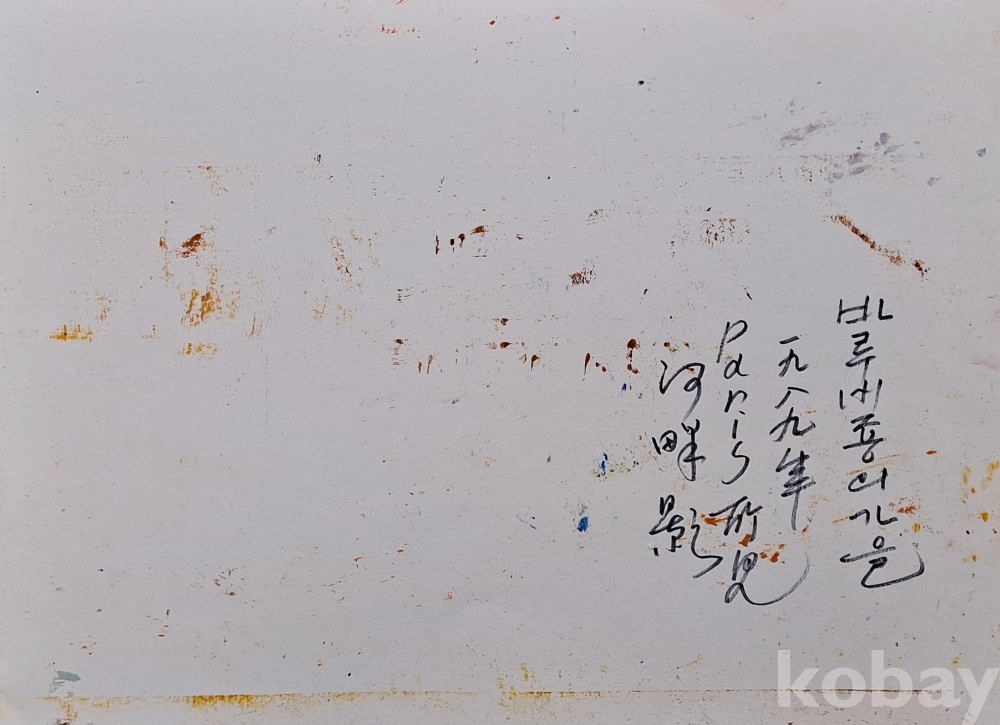 바루비죵의 가을
一九八九年
Paris 所見
河畔 影
kobay